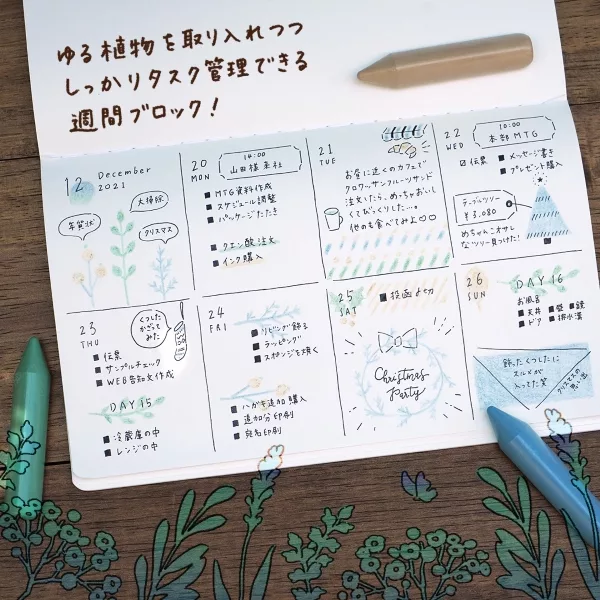 ゆる植物を取り入れつつ
しっかりタスク管理できる
週間ブロック!
12 December
2021
年賀状
大掃除
クリスマス
20
MON
14:00
山田様来社
MTG資料作成
スケジュール調整
パッケージたたき
クエン酸注文
インク購入
21
TUE
お昼に近くのカフェで
クロワッサンフルーツサンド
注文したら、めっちゃおいし
くてびっくりした…。
他のも食べてみよ♡♡
22
WED
10:00
本部MTG
伝票
メッセージ書き
プレゼント購入
テーブルツリー
¥3,080
めちゃんこオサレ
なツリー見つけた!
23
THU
くつした
かざって
みた
伝票
サンプルチェック
WEB告知文作成
DAY 15
冷蔵庫の中
レンジの中
24
FRI
リビング飾る
ラッピング
スポンジを焼く
ハガキ追加購入
追加分印刷
宛名印刷
25
SAT
投函
Christmas
Party
26
SUN
DAY 16
お風呂
天井
壁
鏡
ドア
排水溝
飾ったくつしたに
スルメが
入ってた笑
クリスマスの
思い出